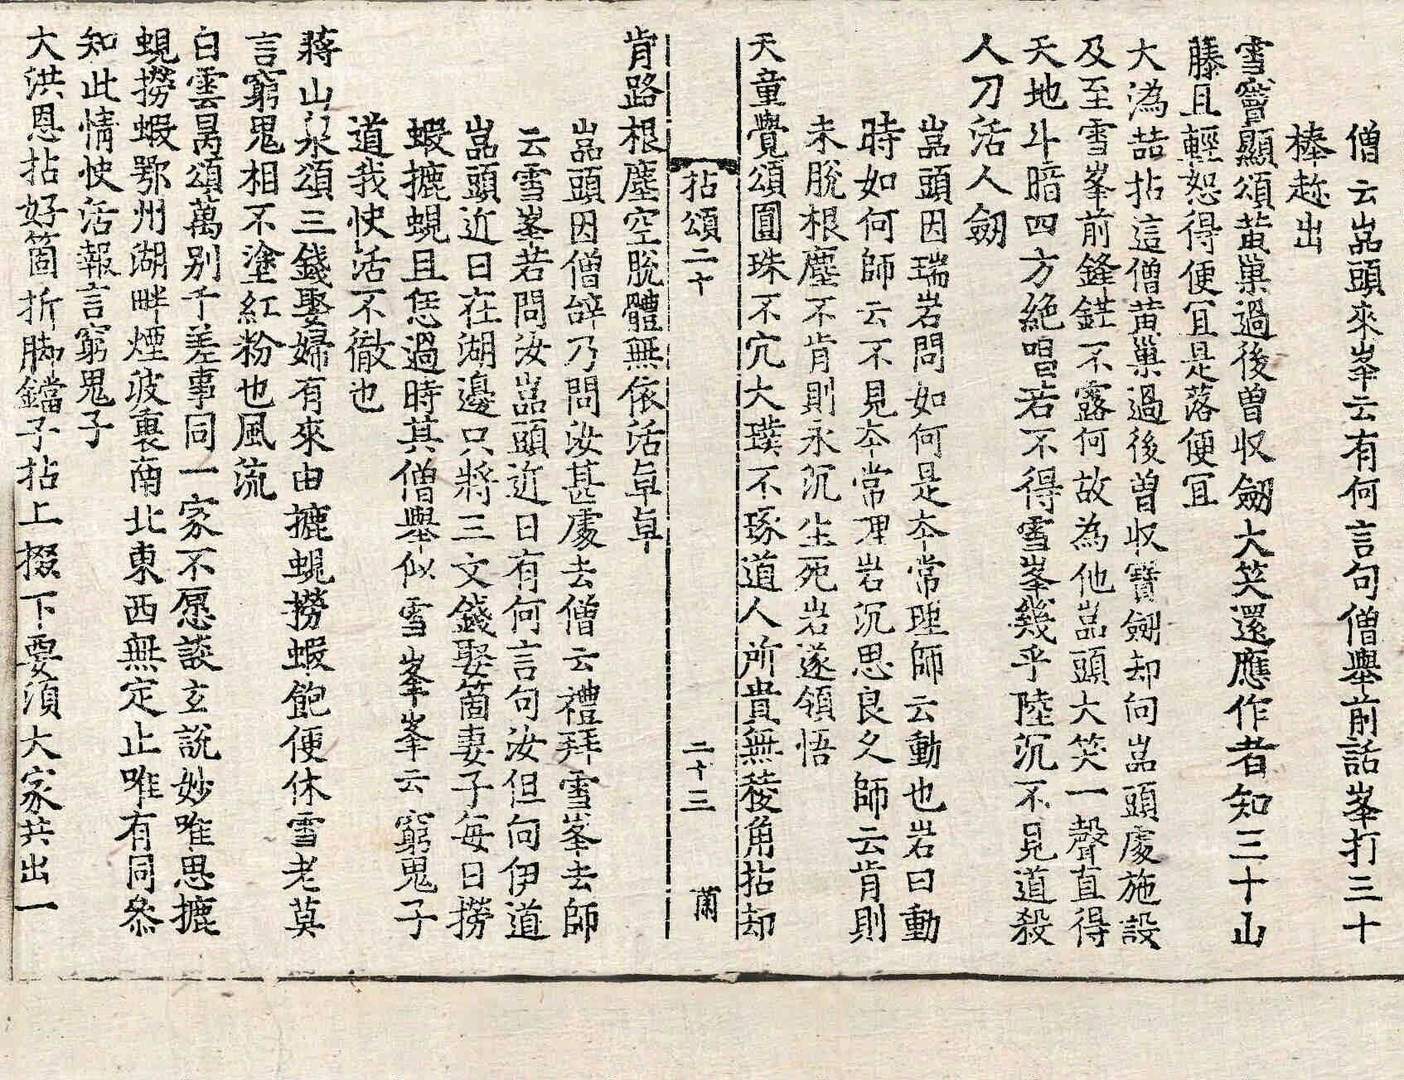 僧云嵓頭來峯云有何言句僧舉前話峯打三十
棒趂出
雪竇顯頌黃巢過後曾収劒大笑還應作者知三十山
藤且輕恕得便冝是落便冝
大溈喆拈這僧黃巢過後曾収寶劒却向嵓頭處施設
及至雪峯前鋒鋩不露何故為他嵓頭大笑一聲直得
天地斗暗四方絶唱若不得雪峯幾乎陸沉不見道殺
人刀活人劒
嵓頭因瑞岩問如何是夲常理師云動也岩曰動
時如何師云不見夲常理岩沉思良久師云肯則
未脫根塵不肯則永沉生死岩遂領悟
天童覺頌圓珠不宂大璞不琢道人所貴無稜角拈却
拈頌二十 二十三 蕳
肯路根塵空脫體無依活卓卓
嵓頭因僧辝乃問汝甚處去僧云禮拜雪峯去師
云雪峯若問汝嵓頭近日有何言句汝但向伊道
嵓頭近日在湖邊只將三文錢娶箇妻子每日撈
蝦摝蜆且恁過時其僧舉似雪峯峯云窮鬼子
道我快活不徹也
蔣山泉頌三錢娶婦有來由摝蜆撈蝦飽便休雪老莫
言窮鬼相不塗紅粉也風流
白雲昺頌萬别千差事同一家不愿談玄說妙唯思摝
蜆撈蝦鄂州湖畔煙波裏南北東西無定止唯有同叅
知此情快活報言窮鬼子
大洪恩拈好箇折脚鐺子拈上掇下要湏大家共出一